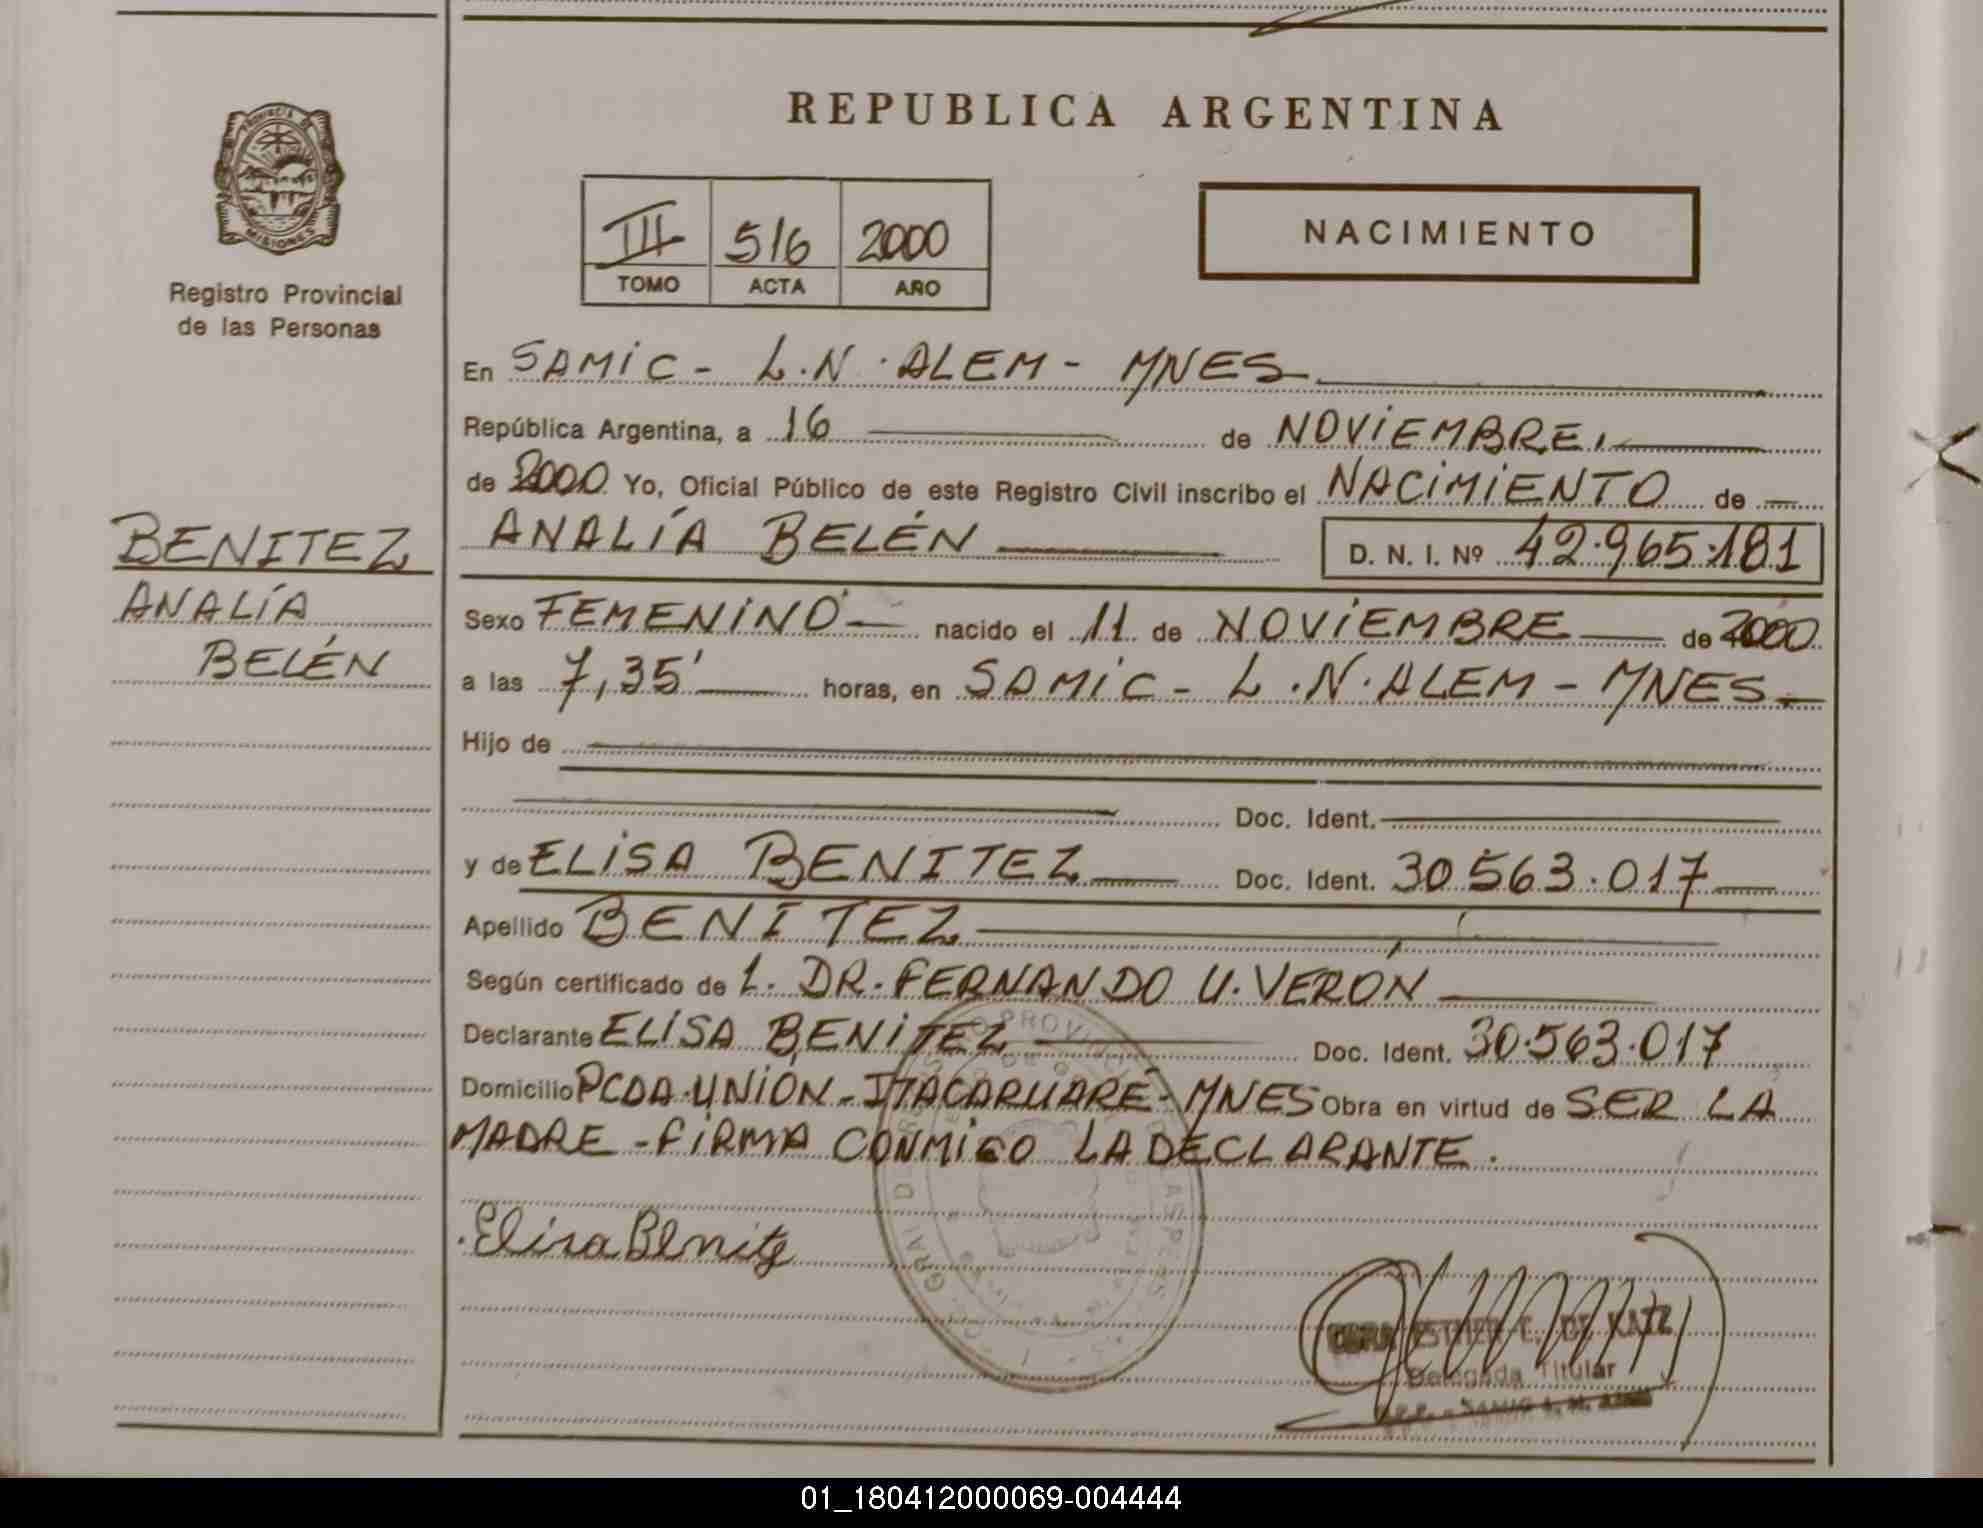 REPUBLICA ARGENTINA
PROVINCIA DE
MISIONES
Registro Provincial
de las Personas
III 516 2000
TOMO ACTA AÑO
NACIMIENTO
En SAMIC - L.N. ALEM - MNES
República Argentina, a 16 de NOVIEMBRE,
de 2000 Yo, Oficial Público de este Registro Civil inscribo el NACIMIENTO de
ANALÍA BELÉN D. N. I. Nº 42.965.181
BENITEZ
ANALÍA
BELÉN
Sexo FEMENINO nacido el 11 de NOVIEMBRE de 2000
a las 7,35' horas, en SAMIC - L.N. ALEM - MNES
Hijo de
Doc. Ident.
y de ELISA BENITEZ Doc. Ident. 30.563.017
Apellido BENITEZ
Según certificado de L. DR. FERNANDO U. VERÓN
Declarante ELISA BENITEZ Doc. Ident. 30.563.017
Domicilio PCDA. UNIÓN - ITACARUARÉ - MNES Obra en virtud de SER LA
MADRE - FIRMA CONMIGO LA DECLARANTE.
Elisa Benitez
ESTHER C. DE KATZ
Delegada Titular
01_180412000069-004444